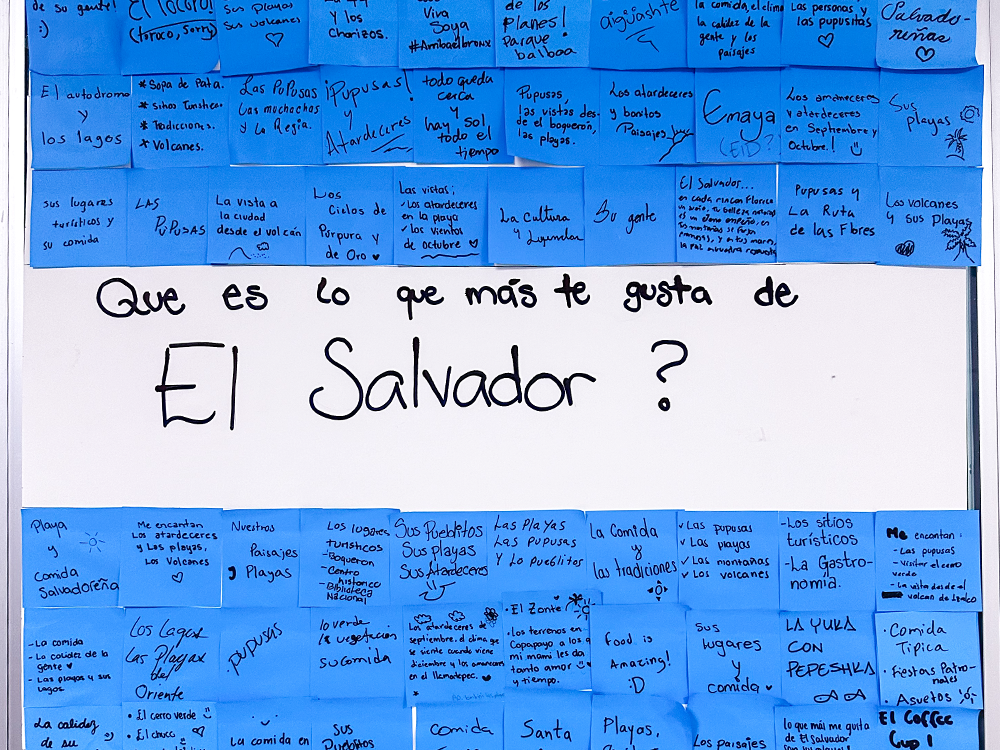 de su gente!
:)
El Tocoro!
(toroco, sorry)
Sus playas
Sus volcanes
y los
Chorizos.
Viva
Soya
#Arribaelbronx
de los
planes!
Parque
balboa
aiguashte
la comida, el clima
la calidez de la
gente y los
paisajes
Las personas y
las pupusitas
Salvado-
reñas
El autodromo
y
los lagos
* Sopa de Pata.
* Sitios Turísticos
* Tradicciones.
* Volcanes.
Las PuPusas
Las muchachas
y La Regia.
¡Pupusas!
y
Atardeceres
todo queda
cerca
y
hay sol
todo el
tiempo
Pupusas,
las vistas des-
de el boquerón,
las playas.
Los atardeceres
y bonitos
Paisajes
Emaya
(EID?)
Los amaneceres
y atardeceres
en Septiembre y
Octubre.!
Sus
playas
sus lugares
turísticos y
su comida
LAS
PUPUSAS
La vista a
la ciudad
desde el volcán
Los
Cielos de
Purpura y
de Oro
Las vistas;
✓ Los atardeceres
en la playa
✓ los vientos
de octubre
La Cultura
y Leyendas
Su gente
El Salvador...
en cada rincon Florece
Pupusas y
La Ruta
de las Flores
Los volcanes
y sus playas
Que es lo que más te gusta de
El Salvador ?
Playa
y
comida
Salvadoreña
Me encantan
Los atardeceres
y Los playas,
Los Volcanes
Nuestros
Paisajes
y Playas
Los lugares
turísticos
- Boqueron
- Centro
histórico
- Biblioteca
Nacional
Sus Pueblitos
Sus playas
Sus Atardeceres
Las Playas
Las pupusas
Y lo pueblitos
la Comida
y
las tradiciones
✓ Las pupusas
✓ Las playas
✓ Las montañas
✓ Los volcanes
-Los sitios
turísticos
-La Gastro-
nomía.
Me encantan:
- Las pupusas
- Visitar el cerro
verde
- La vista desde el
volcan de Izalco
- La comida
- La calidez de la
gente
- Las playas y sus
lagos.
Los Lagos
Las Playas
del
Oriente
pupusas
lo verde
la vegetación
su comida
Los atardeceres de
septiembre, el clima que
se siente cuando viene
diciembre y los amaneceres
en el Ilamatepec.
• El Zonte
• los terrenos en
Copapayo a los q
mi mami les da
tanto amor
y tiempo.
Food is
Amazing!
:D
Sus
lugares
y
comida
LA YUKA
CON
PEPESHKA
• Comida
Tipica
• Fiestas Patro-
nales
• Asuetos
La calidez
de su
• El cerro verde
• El chuco
La comida en
Sus
Pueblitos
Comida
Santa
Playas,
Los paisajes
lo que más me gusta
de El Salvador
El Coffee
Cup 1